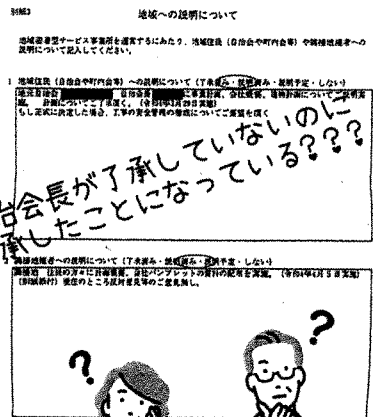 別紙3
地域への説明について
地域密着型サービス事業所を運営するにあたり、地域住民(自治会や町内会等)や隣接地権者への
説明について記入してください。
1 地域住民(自治会や町内会等)への説明について(了承済み・説明済み・説明予定・しない)
地元自治会 自治会長 に事業計画、会社概要、建物計画についてご説明実
施。 計画についてご了承頂く。(令和4年3月29日実施)
もし正式に決定した場合、工事の安全管理の徹底についてご要望を頂く
治会長が了承していないのに
承したことになっている???
隣接地権者への説明について(了承済み・説明済み・説明予定・しない)
隣接地 住民の方々に計画概要、会社パンフレットの資料の配布を実施。(令和4年4月5日実施)
(別紙添付) 現在のところ反対意見等のご意見無し。
?
?